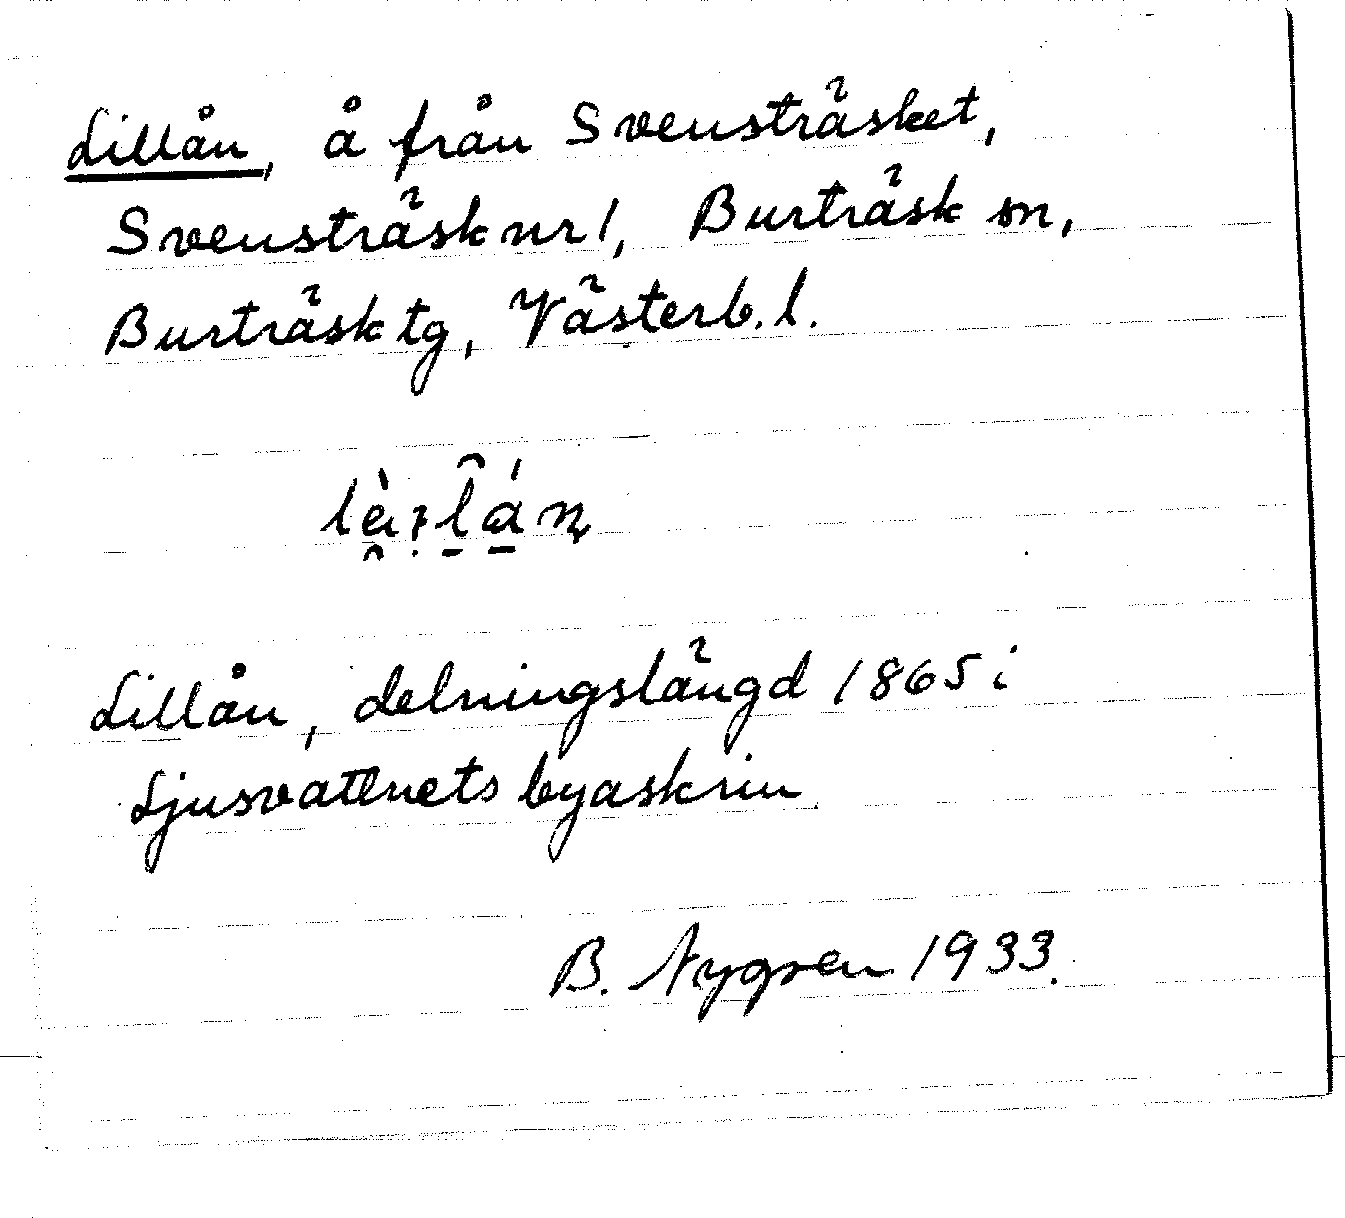 Lillån, å från Svensträsket,
Svensträsk nr 1, Burträsk sn,
Burträsk tg, Västerb. l.
Lillån, delningslängd 1865 i
Ljusvattnets byaskrin
B. Nygren 1933.